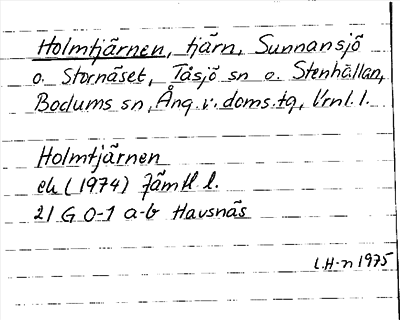 Holmtjärnen, tjärn, Sunnansjö
o. Stornäset, Tåsjö sn o. Stenhällan,
Bodums sn, Ång. v. doms. tg, V:rnl. l.
Holmtjärnen
ek (1974) Jämtl l.
21 G 0-1 a-b Havsnäs
L.H-n 1975